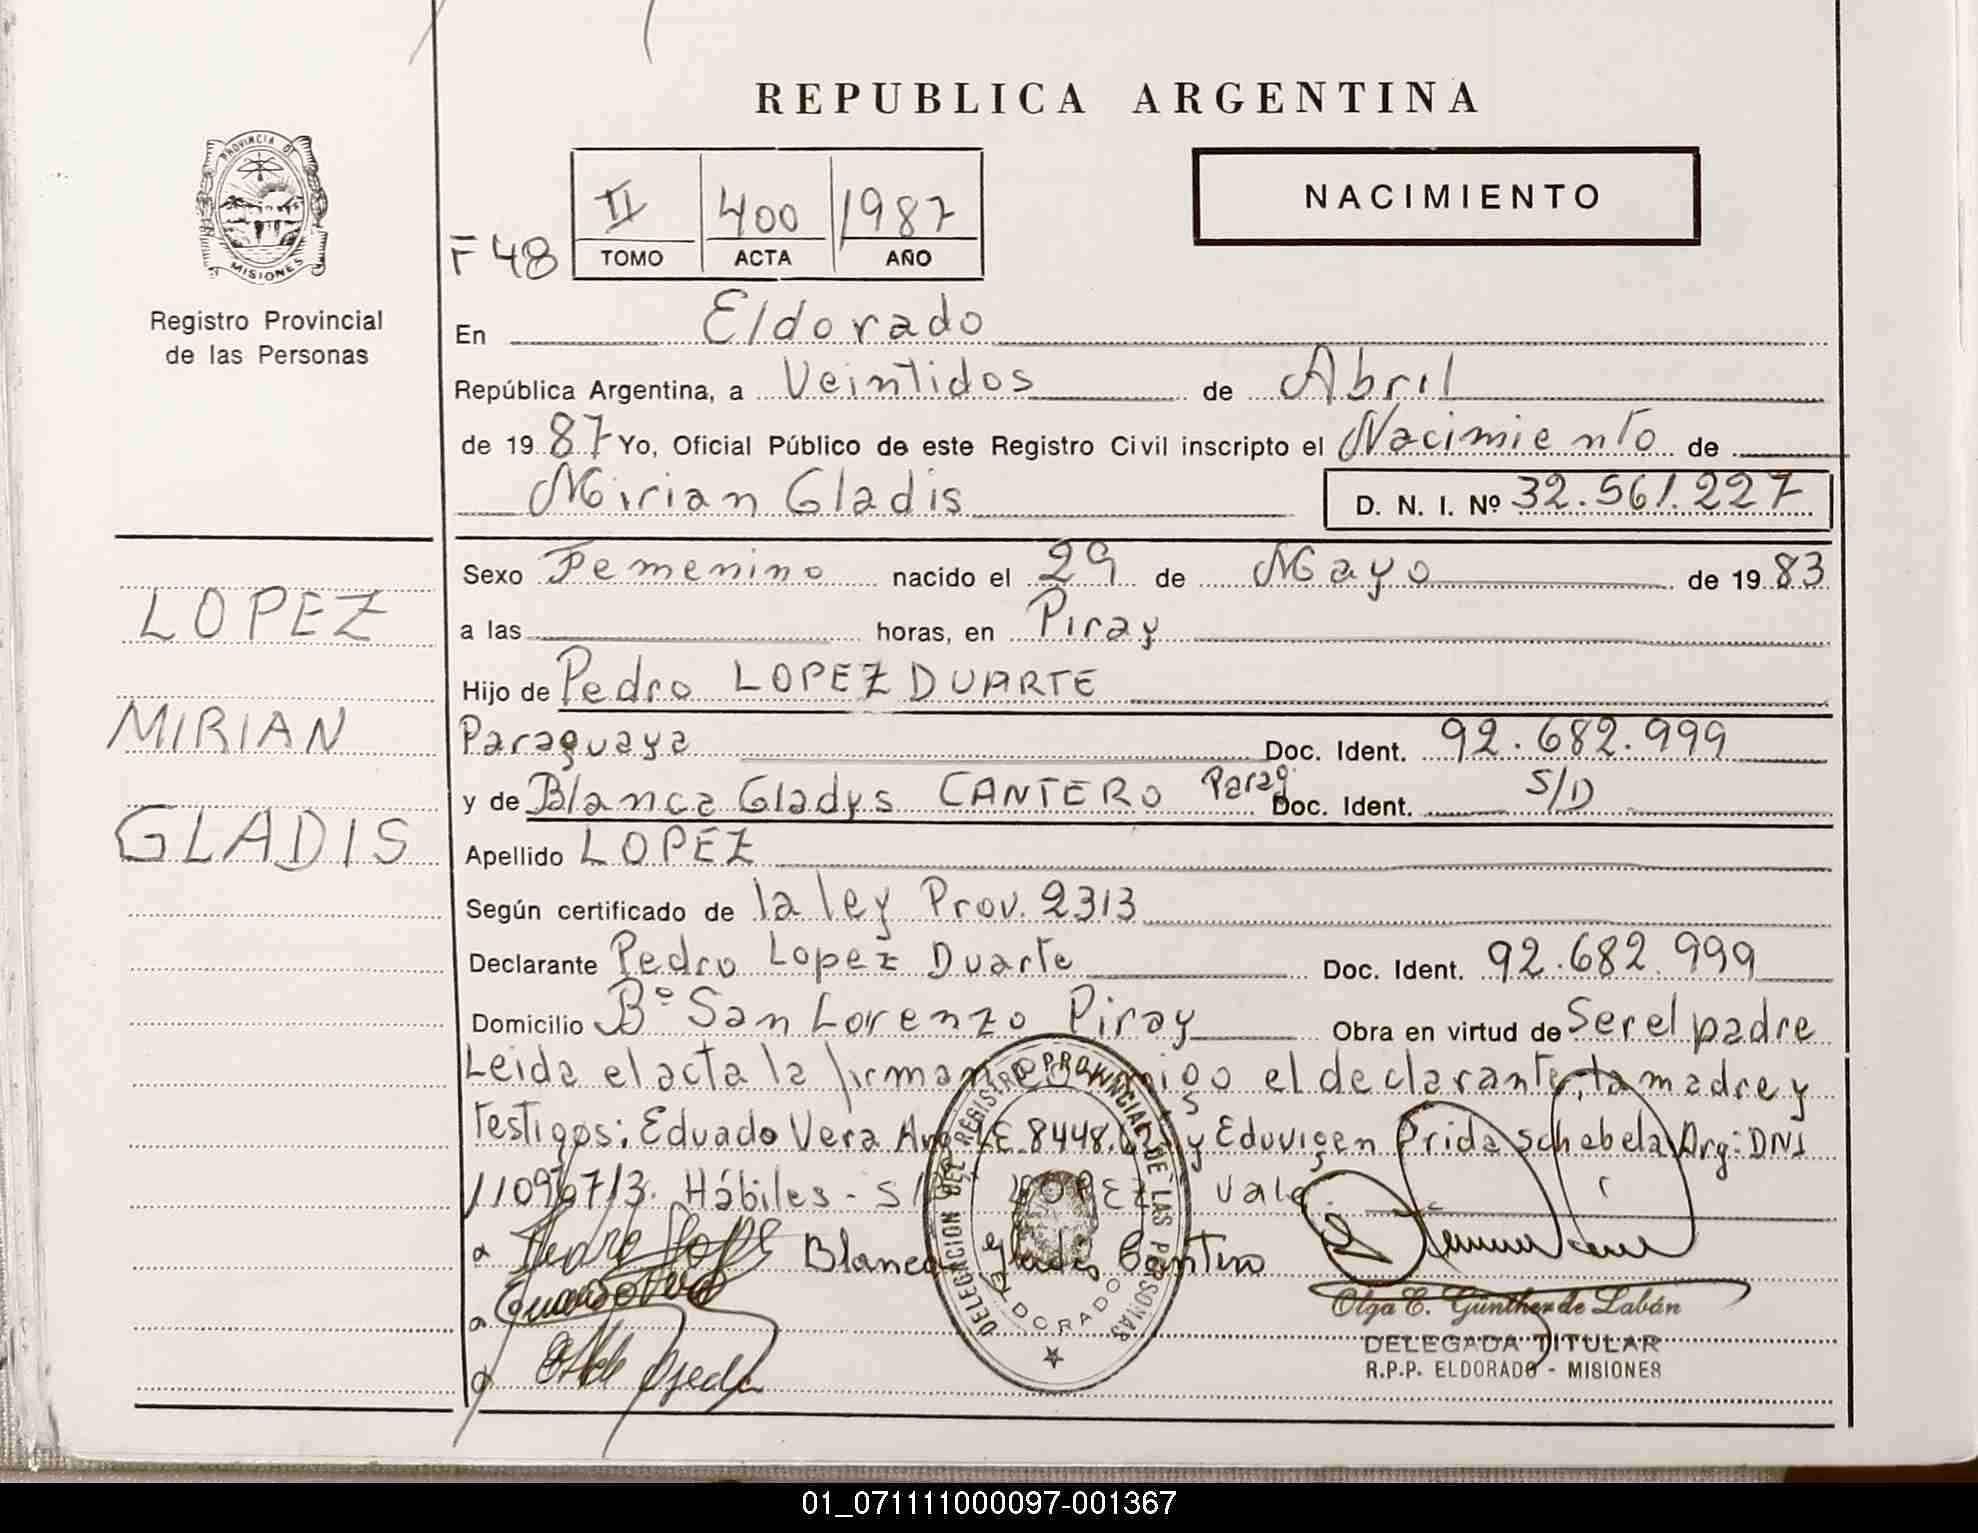 REPUBLICA ARGENTINA
PROVINCIA DE
MISIONES
Registro Provincial
de las Personas
NACIMIENTO
F 48
II 400 1987
TOMO ACTA AÑO
En Eldorado
República Argentina, a Veintidos de Abril
de 19 87 Yo, Oficial Público de este Registro Civil inscripto el Nacimiento de
Mirian Gladis D. N. I. Nº 32.561.227
LOPEZ
MIRIAN
GLADIS
Sexo Femenino nacido el 29 de Mayo de 19 83
a las horas, en Piray
Hijo de Pedro LOPEZ DUARTE
Paraguaya Doc. Ident. 92.682.999
y de Blanca Gladys CANTERO Parag. Doc. Ident. S/D
Apellido LOPEZ
Según certificado de la ley Prov. 2313
Declarante Pedro Lopez Duarte Doc. Ident. 92.682.999
Domicilio Bº San Lorenzo Piray Obra en virtud de Ser el padre
Leida el acta la firman conmigo el declarante, la madre y
testigos: Eduado Vera Arg LE 8448. y Eduvigen Prida Schabela Arg: DNI
Hábiles - S/ LOPEZ Vale
Blanca Gladis Cantero
DELEGACION DEL REGISTRO PROVINCIAL DE LAS PERSONAS
ELDORADO
Olga E. Günther de Labán
DELEGADA TITULAR
R.P.P. ELDORADO - MISIONES
01_071111000097-001367